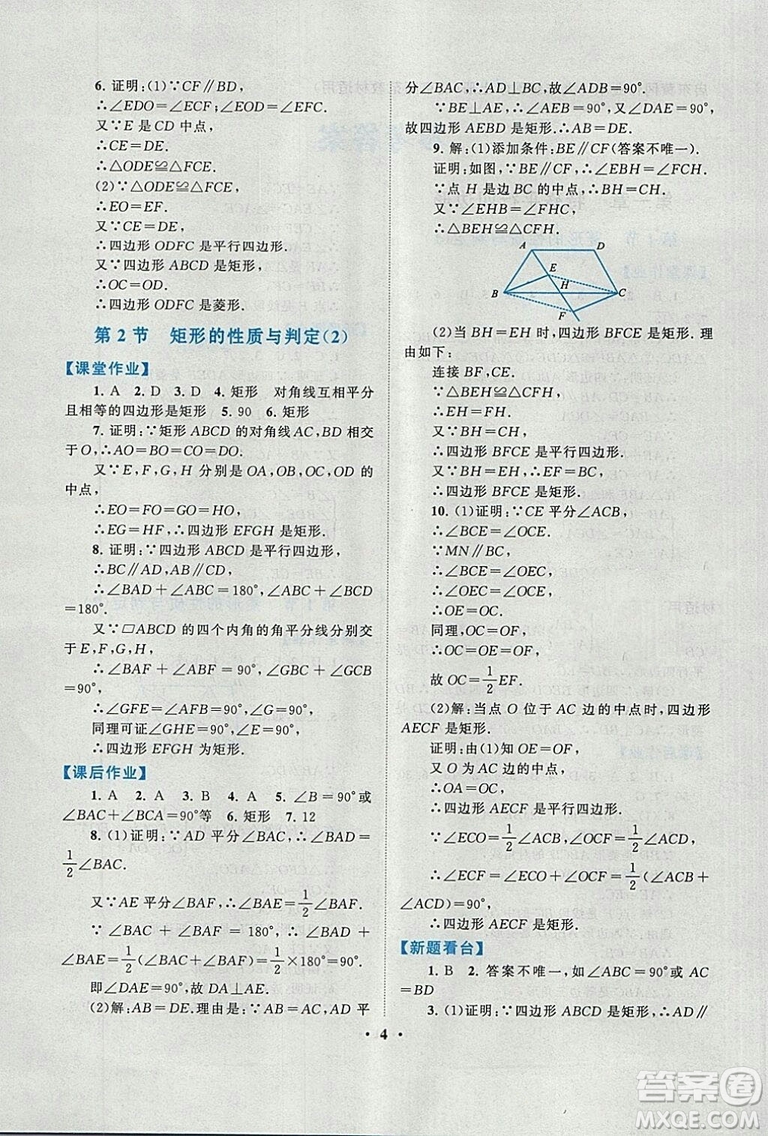 6. 证明:(1)∵CF∥BD,
∴∠EDO=∠ECF;∠EOD=∠EFC.
又∵E 是 CD 中点,
∴CE=DE.
∴△ODE≌△FCE.
(2)∵△ODE≌△FCE,
∴EO=EF.
又∵CE=DE,
∴四边形 ODFC 是平行四边形.
又∵四边形 ABCD 是矩形,
∴OC=OD.
∴四边形 ODFC 是菱形.
第 2 节 矩形的性质与判定(2)
【课堂作业】
1. A 2. D 3. D 4. 矩形 对角线互相平分
且相等的四边形是矩形 5. 90 6. 矩形
7. 证明:∵矩形 ABCD 的对角线 AC,BD 相交
于 O,∴AO=BO=CO=DO.
又∵E,F,G,H 分别是 OA,OB,OC,OD 的
中点,
∴EO=FO=GO=HO,
∴EG=HF,∴四边形 EFGH 是矩形.
8. 证明:∵四边形 ABCD 是平行四边形,
∴BC∥AD,AB∥CD.
∴∠BAD+∠ABC=180°,∠ABC+∠BCD
=180°.
又∵▱ABCD 的四个内角的角平分线分别交
于 E,F,G,H,
∴∠BAF+∠ABF=90°,∠GBC+∠GCB
=90°.
∴∠GFE=∠AFB=90°,∠FGH=90°.
同理可证∠GHE=90°,∠FEH=90°.
∴四边形 EFGH 为矩形.
【课后作业】
1. A 2. A 3. B 4. A 5. ∠B=90°或
∠BAC+∠BCA=90°等 6. 矩形 7. 12
8. (1)证明:∵AD 平分∠BAC,∴∠BAD=
1/2∠BAC.
又∵AE 平分∠BAF,∴∠BAE=1/2∠BAF.
∵∠BAC+∠BAF=180°,
∴∠BAD+∠BAE=1/2(∠BAC+∠BAF)
=1/2×180°=90°.
即∠DAE=90°,故 DA⊥AE.
(2)解:AB=DE.理由是:∵AB=AC,AD 平
分∠BAC,∴AD⊥BC,故∠ADB=90°.
∵BE⊥AE,∴∠AEB=90°,又∠DAE=90°,
故四边形 AEBD 是矩形.∴AB=DE.
9. 解:(1)添加条件:BE∥CF(答案不唯一).
证明:如图,∵BE∥CF,∴∠EBH=∠FCH,
∵点 H 是边 BC 的中点,∴BH=CH,
又∵∠EHB=∠FHC,
∴△BEH≌△CFH.
A D
E
H
B C
F
(2)当 BH=EH 时,四边形 BFCE 是矩形.理
由如下:
连接 BF,CE.
∵△BEH≌△CFH,
∴EH=FH=BH=CH,
∴四边形 BFCE 是平行四边形.
∴BC=EF,
∴四边形 BFCE 是矩形.
10. (1)证明:∵CE 平分∠ACB,
∴∠BCE=∠OCE.
∵MN∥BC,
∴∠BCE=∠OEC,
∴∠OEC=∠OCE.
∴OE=OC.
同理,OC=OF,
∴OE=OF,
故 OC=1/2EF.
(2)解:当点 O 位于 AC 边的中点时,四边形
AECF 是矩形.
证明:由(1)知 OE=OF,
又 O 为 AC 边的中点,
∴OA=OC.
∴四边形 AECF 是平行四边形.
∵∠ECO=1/2∠ACB,∠OCF=1/2∠ACD,
∴∠ECF=∠ECO+∠OCF=1/2(∠ACB+
∠ACD)=90°.
∴四边形 AECF 是矩形.
【新题看台】
1. B 2. 答案不唯一,如∠ABC=90°或 AC
=BD
3. (1)证明:∵四边形 ABCD 是矩形,∴AD∥
• 4 •
答案圈
MXQE.COM